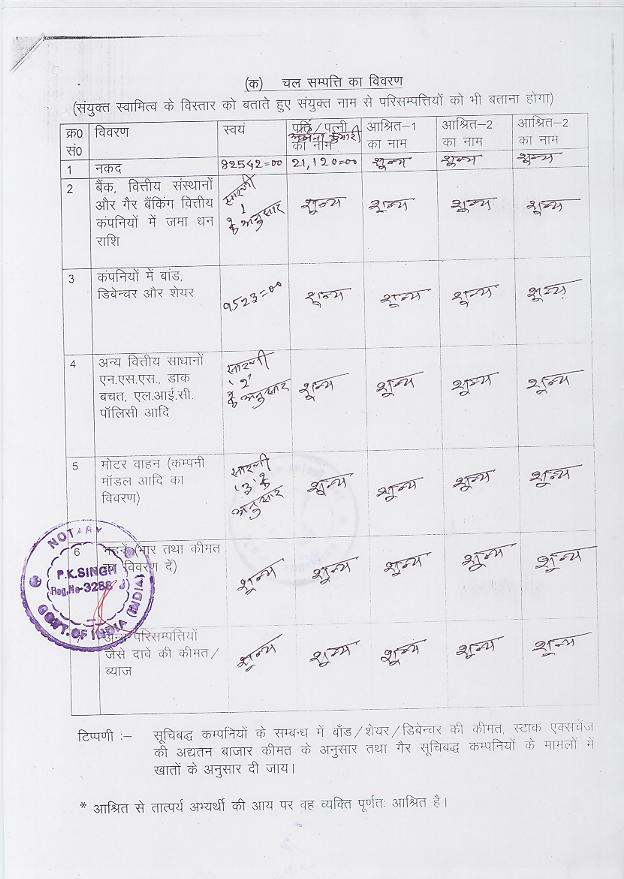 (क) चल सम्पत्ति का विवरण
(संयुक्त स्वामित्व के विस्तार को बताते हुए संयुक्त नाम से परिसम्पत्तियों को भी बताना होगा)
क्र0 सं0 विवरण स्वयं पति/पत्नी का नाम आश्रित-1 का नाम आश्रित-2 का नाम आश्रित-2 का नाम
1 नकद 82542=00 21,120=00 शून्य शून्य शून्य
2 बैंक, वित्तीय संस्थानों
और गैर बैंकिंग वित्तीय
कंपनियों में जमा धन
राशि
सारणी
1
के अनुसार
शून्य शून्य शून्य शून्य
3 कंपनियों में बांड,
डिबेन्चर और शेयर
9523=00 शून्य शून्य शून्य शून्य
4 अन्य वित्तीय साधानों
एन.एस.एस., डाक
बचत, एल.आई.सी.
पॉलिसी आदि
सारणी
'2'
के अनुसार
शून्य शून्य शून्य शून्य
5 मोटर वाहन (कम्पनी
मॉडल आदि का
विवरण)
सारणी
'3' के
अनुसार
शून्य शून्य शून्य शून्य
6 (भार तथा कीमत
विवरण दें)
शून्य शून्य शून्य शून्य शून्य
अन्य परिसम्पत्तियों
जैसे दावे की कीमत/
ब्याज
शून्य शून्य शून्य शून्य शून्य
NOTARY
P.K.SINGH
Reg.No-3288
GOVT.OF INDIA (INDIA)
टिप्पणी :– सूचिबद्ध कम्पनियों के सम्बन्ध में बॉंड/शेयर/डिबेन्चर की कीमत, स्टाक एक्सचेंज
की अद्यतन बाजार कीमत के अनुसार तथा गैर सूचिबद्ध कम्पनियों के मामलों में
खातों के अनुसार दी जाय।
* आश्रित से तात्पर्य अभ्यर्थी की आय पर वह व्यक्ति पूर्णतः आश्रित है।